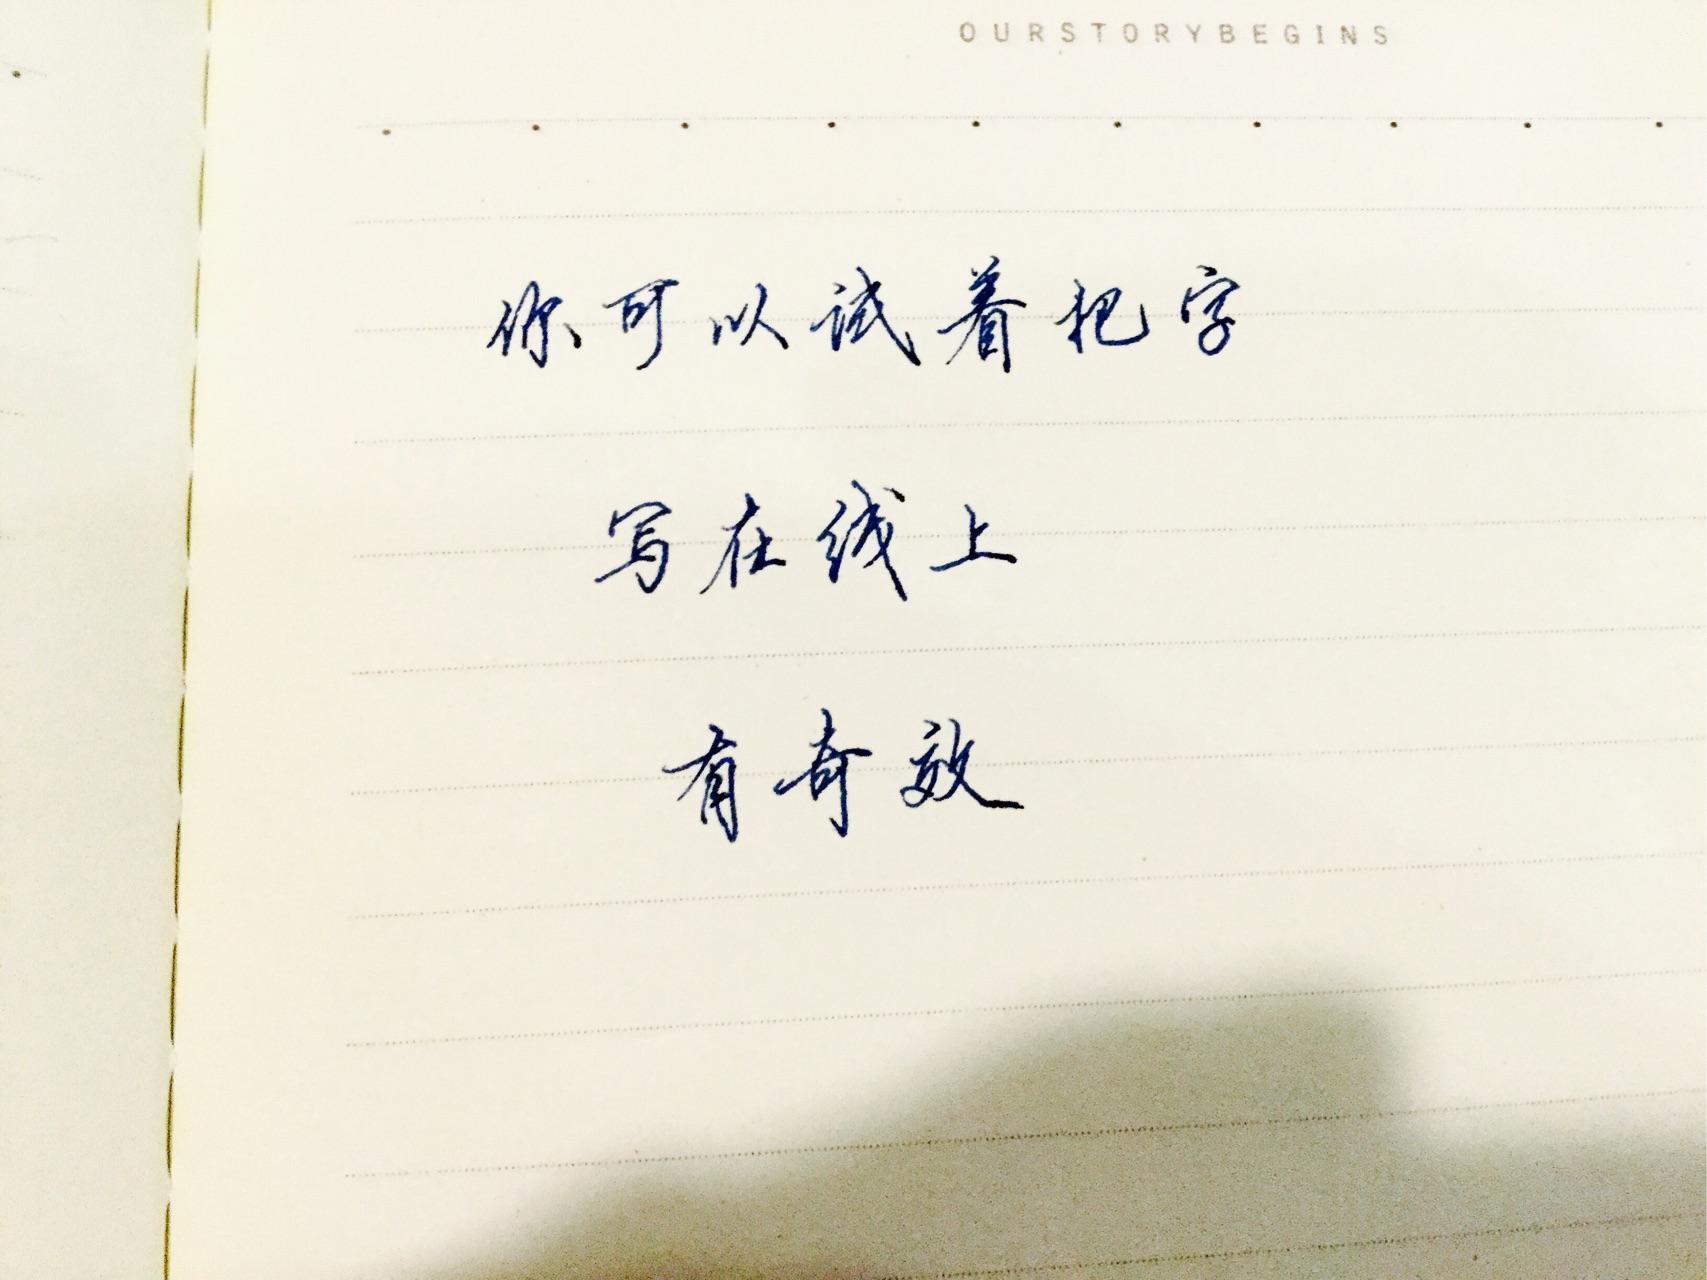 OURSTORYBEGINS
你可以试着把字
写在线上
有奇效